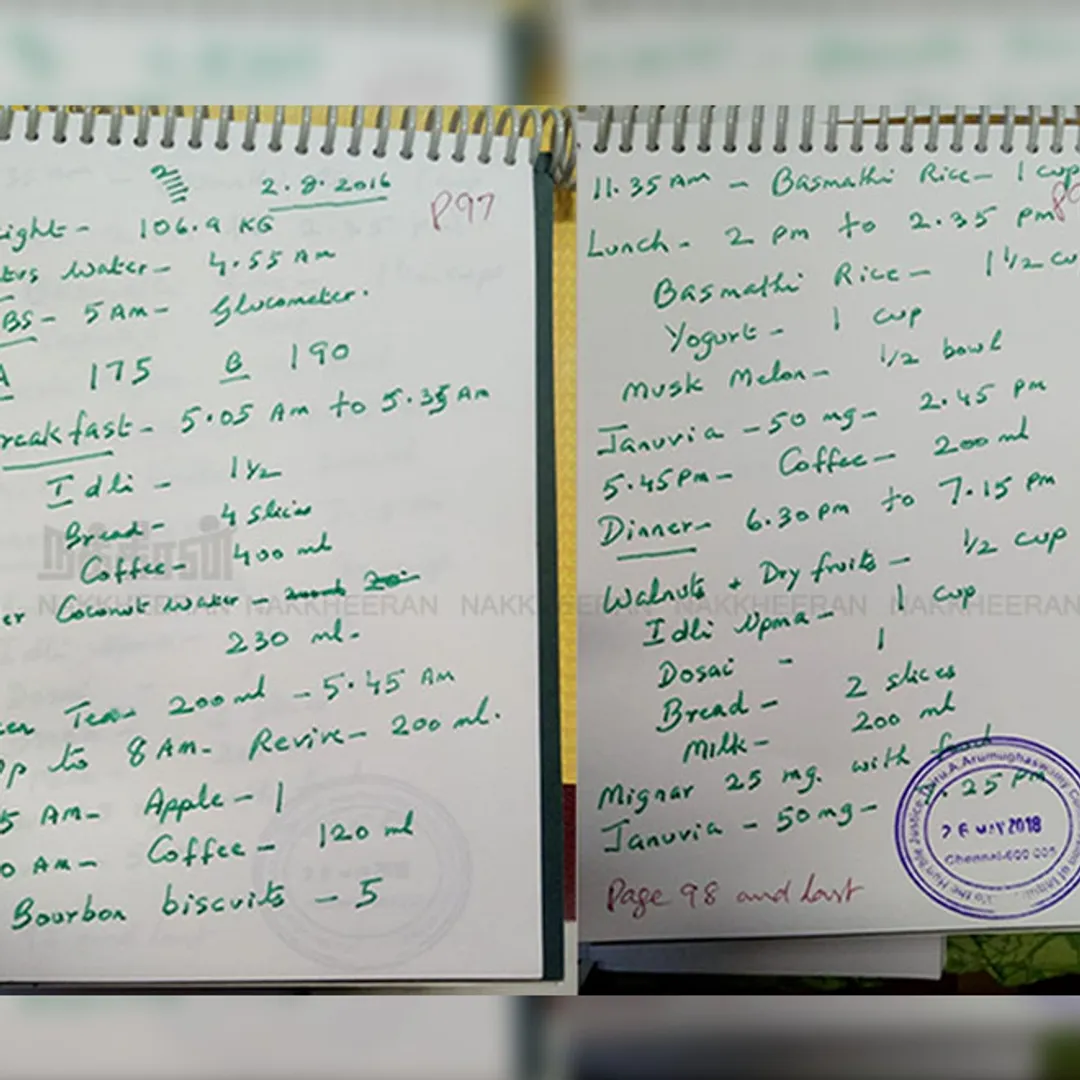 2
2.8.2016
P97
ight - 106.9 KG
ters water - 4.55 AM
BS - 5 AM - Glucometer.
A 175 B 190
reakfast - 5.05 AM to 5.35 AM
Idli - 1 1/2
Bread - 4 slices
Coffee - 400 ml
er Coconut water -
230 ml -
en Tea 200 ml - 5.45 AM
pp to 8 AM - Revive - 200 ml.
5 AM - Apple - 1
0 AM - Coffee - 120 ml
Bourbon biscuits - 5
11.35 AM - Basmathi Rice - 1 cup
P9
Lunch - 2 pm to 2.35 pm
Basmathi Rice - 1 1/2 cu
Yogurt - 1 cup
Musk Melon - 1/2 bowl
Januvia - 50 mg - 2.45 pm
5.45 PM - Coffee - 200 ml
Dinner - 6.30 pm to 7.15 pm
Walnuts + Dry fruits - 1/2 cup
Idli Upma - 1 cup
Dosai - 1
Bread - 2 slices
Milk - 200 ml
Mignar 25 mg. with food
Januvia - 50 mg - 7.25 PM
Page 98 and last
Hon'ble Justice Thiru.A.Arumughaswamy
26 MAY 2018
Chennai-600 005
நக்கீரன்
NAKKHEERAN NAKKHEERAN NAKKHEERAN NAKKHEERAN NAKKHEERAN